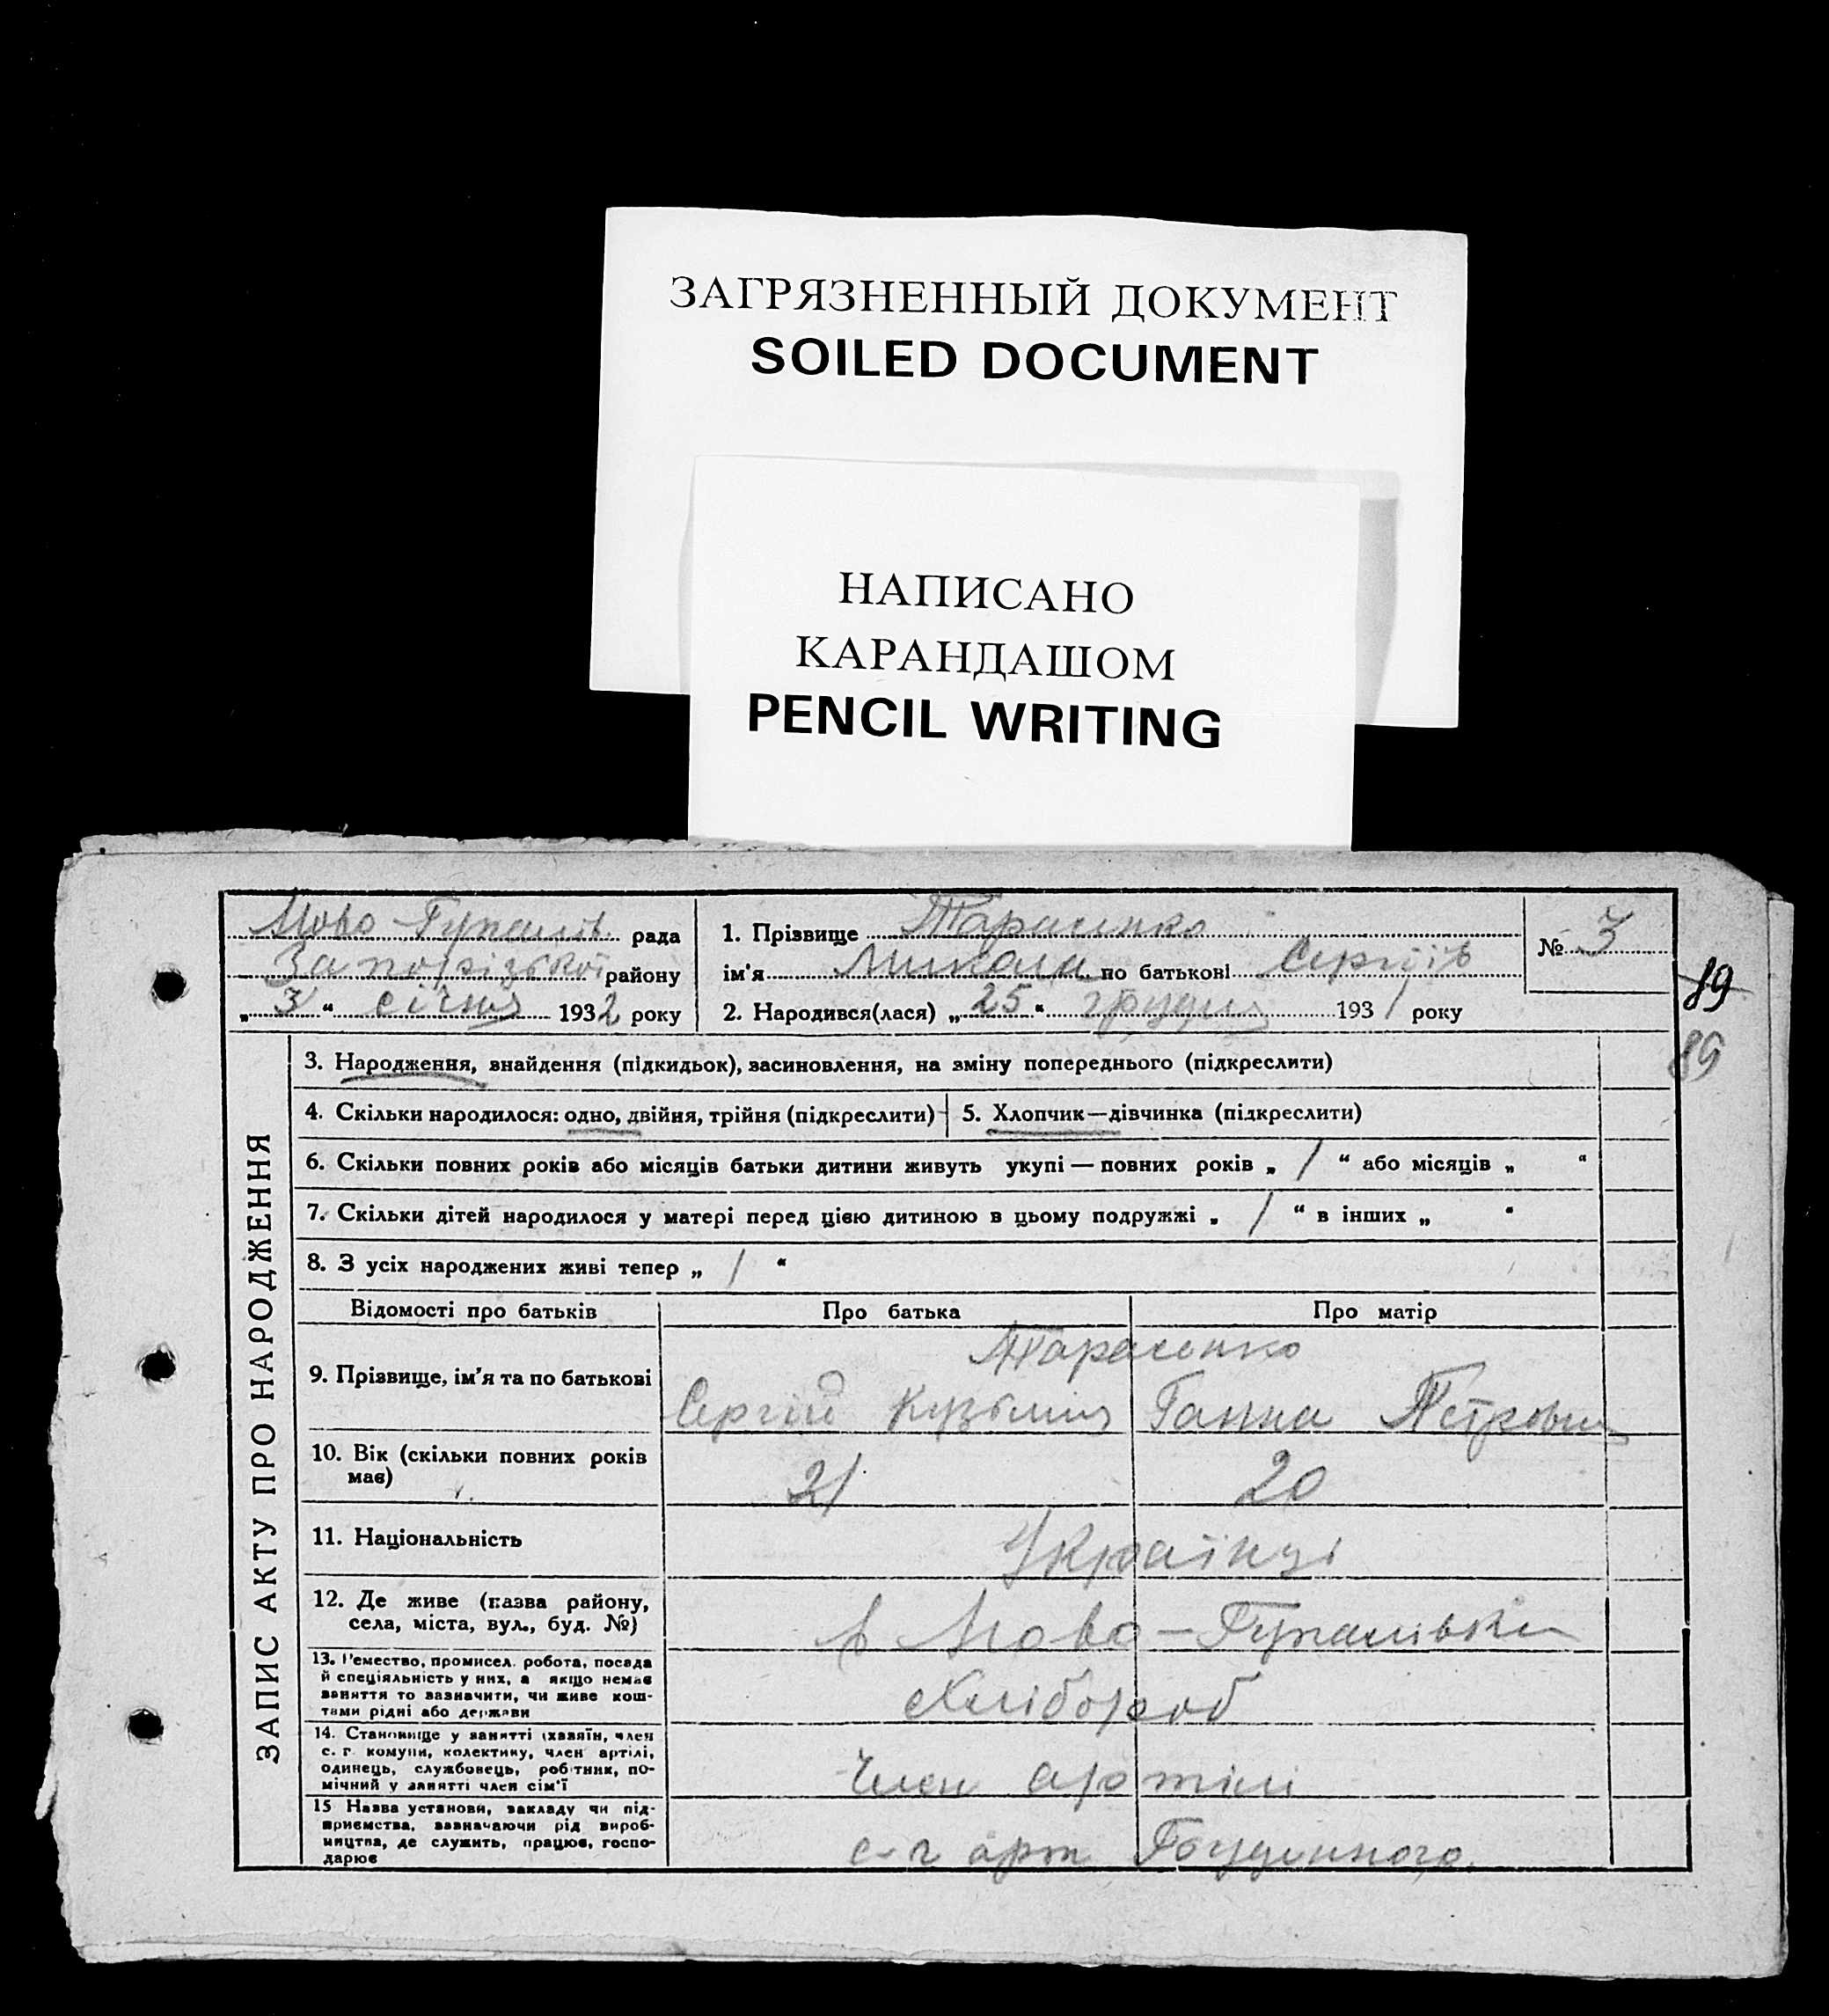 ЗАГРЯЗНЕННЫЙ ДОКУМЕНТ
SOILED DOCUMENT
НАПИСАНО
КАРАНДАШОМ
PENCIL WRITING
Ново-Гупалів. рада
Запорізької району
„3“ січня 1932 року
1. Прізвище Тарасенко
ім'я Микола по батькові Сергіїв
2. Народився(лася) „25“ грудня 1931 року
№ 3
89
89
ЗАПИС АКТУ ПРО НАРОДЖЕННЯ
3. Народження, знайдення (підкидьок), засиновлення, на зміну попереднього (підкреслити)
4. Скільки народилося: одно, двійня, трійня (підкреслити)
5. Хлопчик—дівчинка (підкреслити)
6. Скільки повних років або місяців батьки дитини живуть укупі — повних років „ / “ або місяців „ “
7. Скільки дітей народилося у матері перед цією дитиною в цьому подружжі „ / “ в інших „ “
8. З усіх народжених живі тепер „ / “
Відомості про батьків Про батька Про матір
9. Прізвище, ім'я та по батькові
Тарасенко
Сергій Кузьмич Ганна Петровна
10. Вік (скільки повних років
має)
21 20
11. Національність
Українці
12. Де живе (назва району,
села, міста, вул., буд. №)
Ново-Гупалівка
13. Ремество, промисел, робота, посада
й спеціяльність у них, а якщо немає
заняття то зазначити, чи живе кош-
тами рідні або держави
Хлібороб
14. Становище у занятті (хазяїн, член
с. г. комуни, колективу, член артілі,
одинець, службовець, робітник, по-
мічний у занятті член сім'ї
Член артілі
15 Назва установи, закладу чи під-
приємства, зазначаючи рід вироб-
ництва, де служить, працює, госпо-
дарює
с-г арт Будьонного